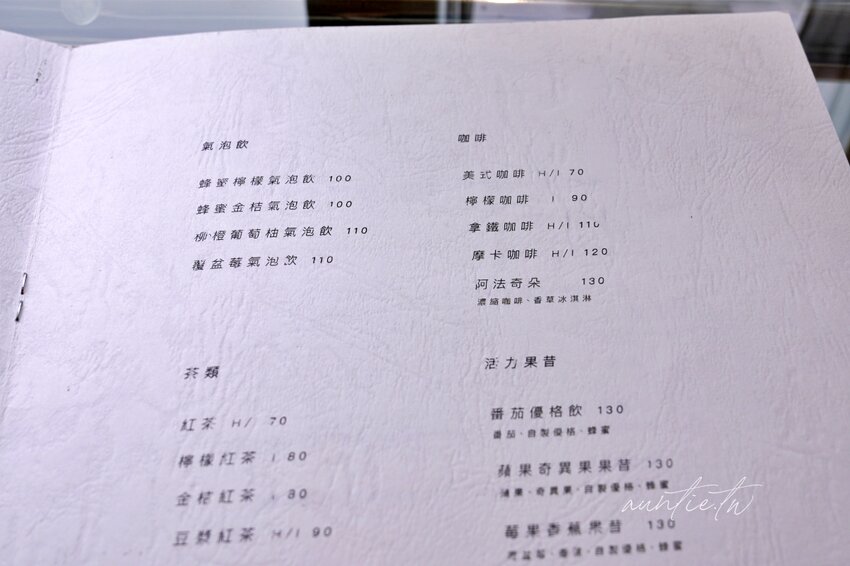 氣泡飲
蜂蜜檸檬氣泡飲 100
蜂蜜金桔氣泡飲 100
柳橙葡萄柚氣泡飲 110
覆盆莓氣泡飲 110
咖啡
美式咖啡 H/I 70
檸檬咖啡 I 90
拿鐵咖啡 H/I 110
摩卡咖啡 H/I 120
阿法奇朵 130
濃縮咖啡、香草冰淇淋
茶類
紅茶 H/I 70
檸檬紅茶 I 80
金桔紅茶 I 80
豆漿紅茶 H/I 90
活力果昔
番茄優格飲 130
番茄、自製優格、蜂蜜
蘋果奇異果果昔 130
蘋果、奇異果、自製優格、蜂蜜
莓果香蕉果昔 130
覆盆莓、香蕉、自製優格、蜂蜜
auntie.tw